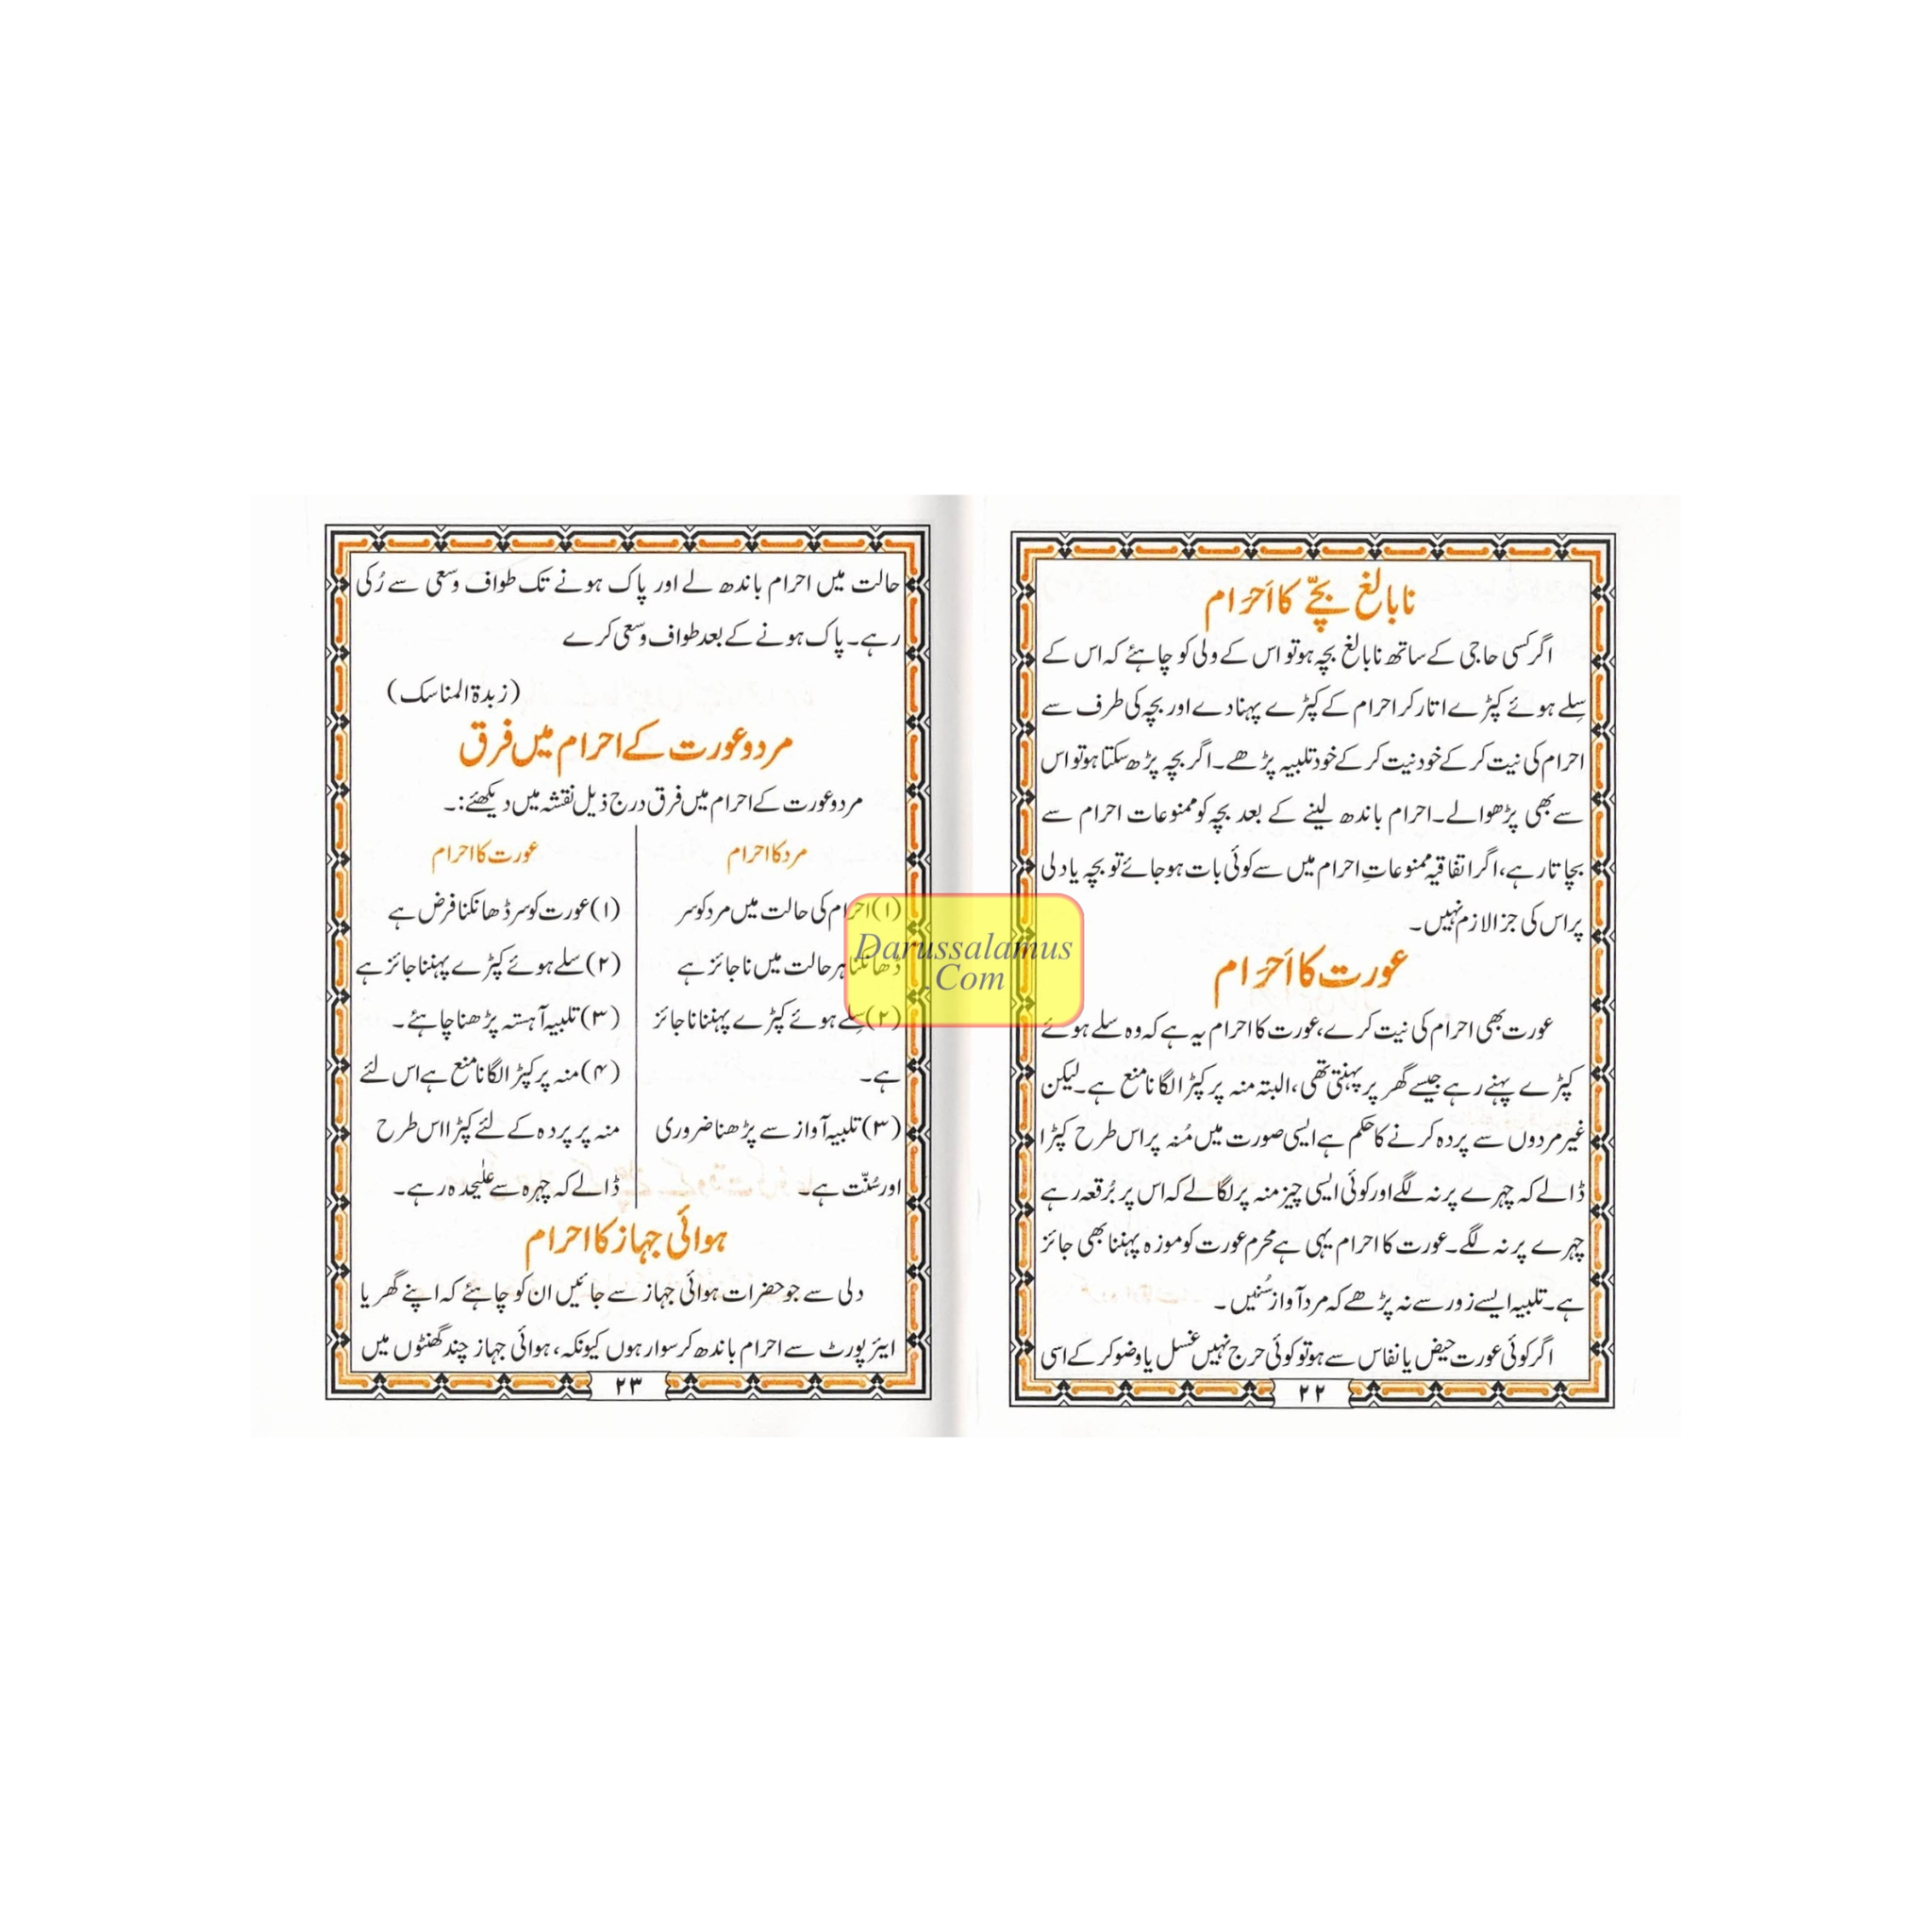 نابالغ بچّے کا اَحرَام
اگر کسی حاجی کے ساتھ نابالغ بچہ ہو تو اس کے ولی کو چاہئے کہ اس کے
سِلے ہوئے کپڑے اتار کر احرام کے کپڑے پہنادے اور بچہ کی طرف سے
احرام کی نیت کر کے خود نیت کر کے خود تلبیہ پڑھے۔ اگر بچہ پڑھ سکتا ہو تو اس
سے بھی پڑھوالے۔ احرام باندھ لینے کے بعد بچہ کو ممنوعات احرام سے
بچاتا رہے، اگر اتفاقیہ ممنوعاتِ احرام میں سے کوئی بات ہوجائے تو بچہ یا دلی
پر اس کی جزا لازم نہیں۔
عورت کا اَحرَام
عورت بھی احرام کی نیت کرے، عورت کا احرام یہ ہے کہ وہ سلے ہوئے
کپڑے پہنے رہے جیسے گھر پر پہنتی تھی، البتہ منہ پر کپڑا لگانا منع ہے۔ لیکن
غیر مردوں سے پردہ کرنے کا حکم ہے ایسی صورت میں مُنہ پر اس طرح کپڑا
ڈالے کہ چہرے پر نہ لگے اور کوئی ایسی چیز منہ پر لگالے کہ اس پر بُرقعہ رہے
چہرے پر نہ لگے۔ عورت کا احرام یہی ہے محرم عورت کو موزہ پہننا بھی جائز
ہے۔ تلبیہ ایسے زور سے نہ پڑھے کہ مرد آواز سُنیں۔
اگر کوئی عورت حیض یا نفاس سے ہو تو کوئی حرج نہیں غسل یا وضو کر کے اسی
۲۲
حالت میں احرام باندھ لے اور پاک ہونے تک طواف وسعی سے رُکی
رہے۔ پاک ہونے کے بعد طواف وسعی کرے
(زبدۃ المناسک)
مرد و عورت کے احرام میں فرق
مرد و عورت کے احرام میں فرق درج ذیل نقشہ میں دیکھئے:۔
مرد کا احرام
(۱) احرام کی حالت میں مرد کو سر
ڈھانکنا ہر حالت میں ناجائز ہے
(۲) سِلے ہوئے کپڑے پہننا ناجائز
ہے۔
(۳) تلبیہ آواز سے پڑھنا ضروری
اور سُنّت ہے۔
عورت کا احرام
(۱) عورت کو سر ڈھانکنا فرض ہے
(۲) سلے ہوئے کپڑے پہننا جائز ہے
(۳) تلبیہ آہستہ پڑھنا چاہئے۔
(۴) منہ پر کپڑا لگانا منع ہے اس لئے
منہ پر پردہ کے لئے کپڑا اس طرح
ڈالے کہ چہرہ سے علیٰحدہ رہے۔
ہوائی جہاز کا احرام
دلی سے جو حضرات ہوائی جہاز سے جائیں ان کو چاہئے کہ اپنے گھر یا
ایئر پورٹ سے احرام باندھ کر سوار ہوں کیونکہ، ہوائی جہاز چند گھنٹوں میں
۲۳
Darussalamus
.Com